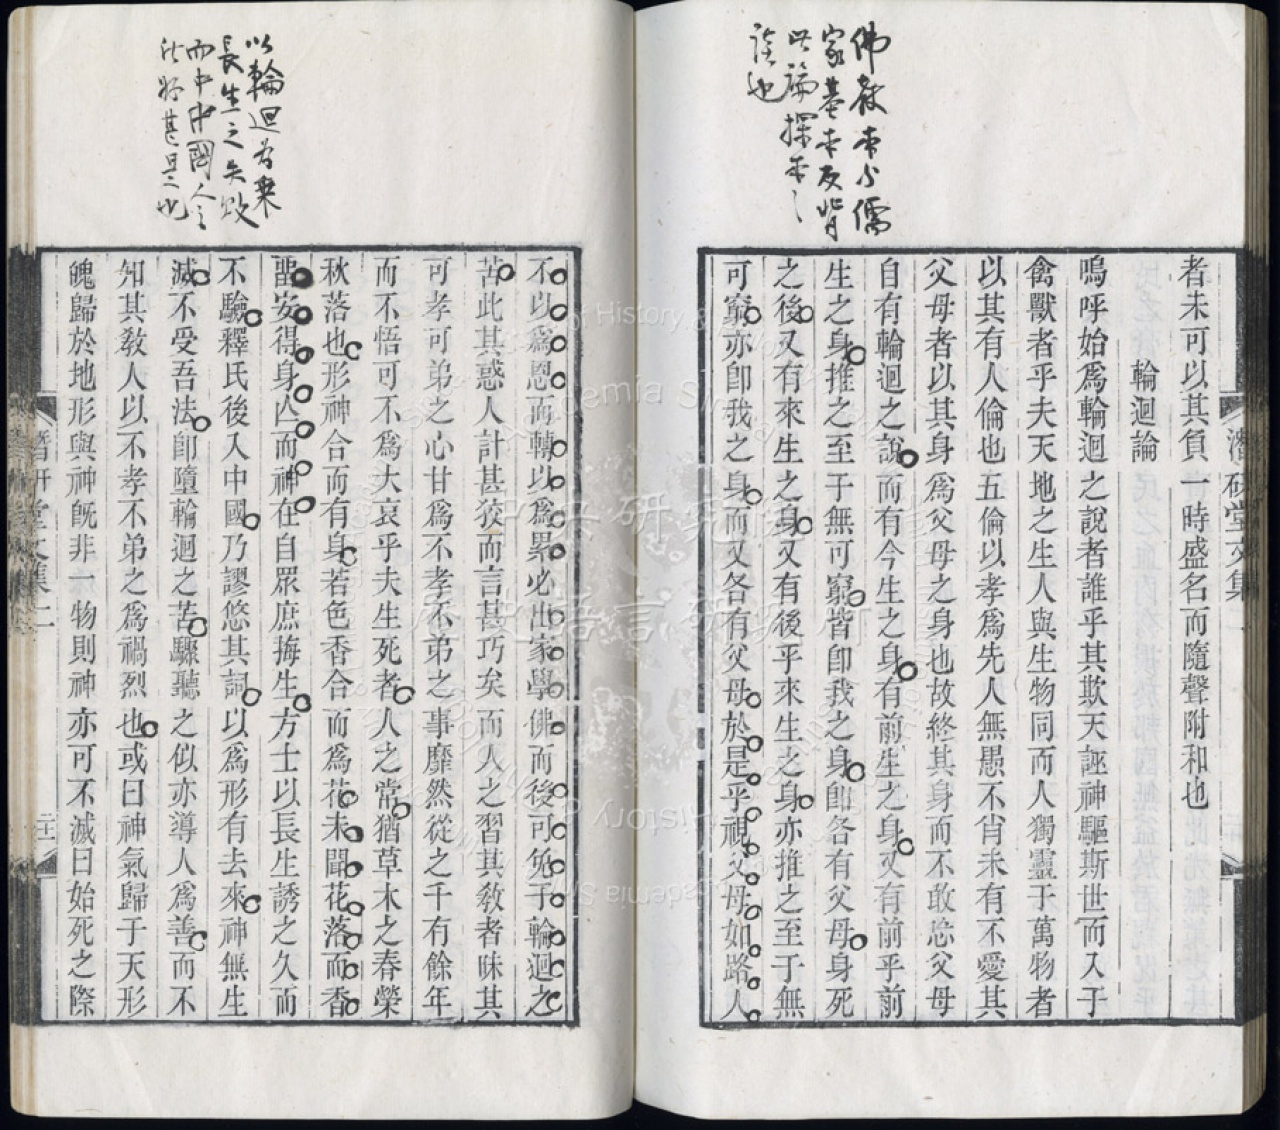 佛教本與儒
家基本反背
此論探本之
談也
者未可以其負一時盛名而隨聲附和也
輪迴論
嗚呼始爲輪迴之說者誰乎其欺天誣神驅斯世而入于
禽獸者乎夫天地之生人與生物同而人獨靈于萬物者
以其有人倫也五倫以孝爲先人無愚不肖未有不愛其
父母者以其身爲父母之身也故終其身而不敢忘父母
自有輪迴之說而有今生之身有前生之身又有前乎前
生之身推之至于無可窮皆卽我之身卽各有父母身死
之後又有來生之身又有後乎來生之身亦推之至于無
可窮亦卽我之身而又各有父母於是乎視父母如路人
潛研堂文集二
以輪迴爲乘
長生之失敗
而中中國人之
所好甚是也
不以爲恩而轉以爲累必出家學佛而後可免于輪迴之
苦此其惑人計甚狡而言甚巧矣而人之習其敎者昧其
可孝可弟之心甘爲不孝不弟之事靡然從之千有餘年
而不悟可不爲大哀乎夫生死者人之常猶草木之春榮
秋落也形神合而有身若色香合而爲花未聞花落而香
畱安得身亾而神在自眾庶挴生方士以長生誘之久而
不驗釋氏後入中國乃謬悠其詞以爲形有去來神無生
滅不受吾法卽墮輪迴之苦驟聽之似亦導人爲善而不
知其敎人以不孝不弟之爲禍烈也或曰神氣歸于天形
魄歸於地形與神旣非一物則神亦可不滅曰始死之際
潛研堂文集二
二十一